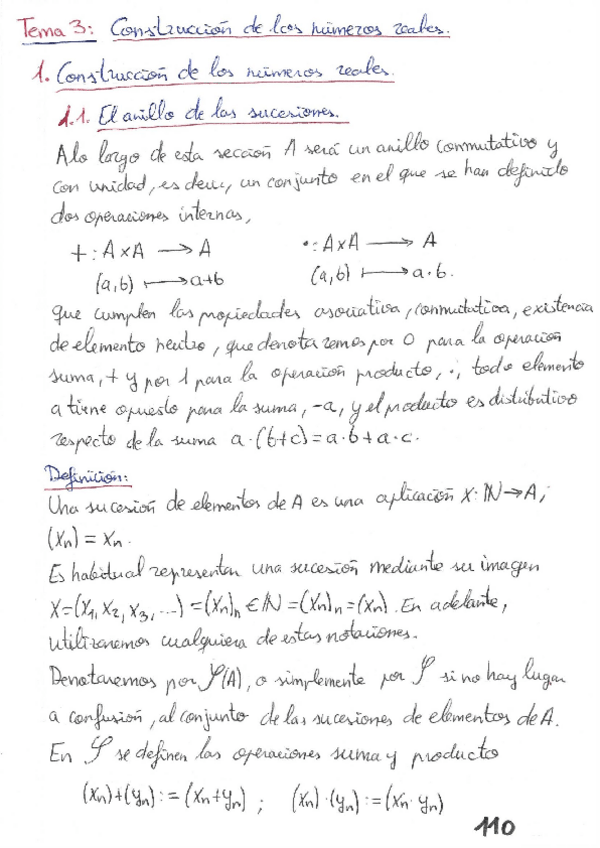 Tema 3: Construcción de los números reales.
1. Construcción de los números reales.
1.1. El anillo de las sucesiones.
A lo largo de esta sección A será un anillo conmutativo y
con unidad, es decir, un conjunto en el que se han definido
dos operaciones internas,
+ : A x A → A · : A x A → A
(a,b) ↦ a+b (a,b) ↦ a·b.
que cumplen las propiedades asociativa, conmutativa, existencia
de elemento neutro, que denotaremos por 0 para la operación
suma, + y por 1 para la operación producto, ·, todo elemento
a tiene opuesto para la suma, -a, y el producto es distributivo
respecto de la suma a·(b+c)=a·b+a·c.
Definición:
Una sucesión de elementos de A es una aplicación x: ℕ→A;
(Xn) = xn.
Es habitual representar una sucesión mediante su imagen
X=(X1, X2, X3, ...) = (Xn)n ∈ ℕ = (Xn)n = (Xn). En adelante,
utilizaremos cualquiera de estas notaciones.
Denotaremos por 𝒮(A), o simplemente por 𝒮 si no hay lugar
a confusión, al conjunto de las sucesiones de elementos de A.
En 𝒮 se definen las operaciones suma y producto
(Xn)+(yn):=(Xn+yn) ; (Xn)·(yn):=(Xn·yn)
110